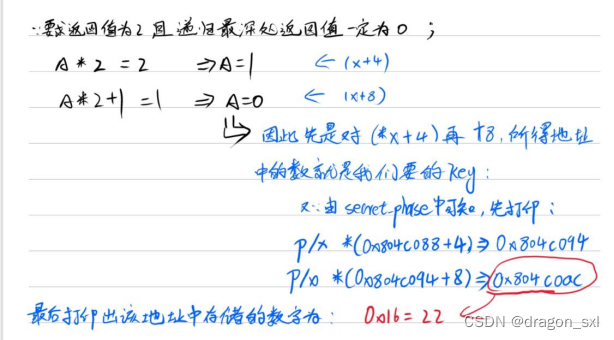 ∵要求返回值为2且递归最深处返回值一定为0；
A*2=2 ⇒A=1 ← (x+4)
A*2+1=1 ⇒ A=0 ← (x+8)
因此先是对(*x+4)再+8,所得地址
中的数就是我们要的key：
又∵由secret_phase中可知,先打印：
p/x *(0x804c088+4)⇒0x804c094
p/x *(0x804c094+8)⇒0x804c0ac
最后打印出该地址中存储的数字为： 0x16=22
CSDN @dragon_sxl